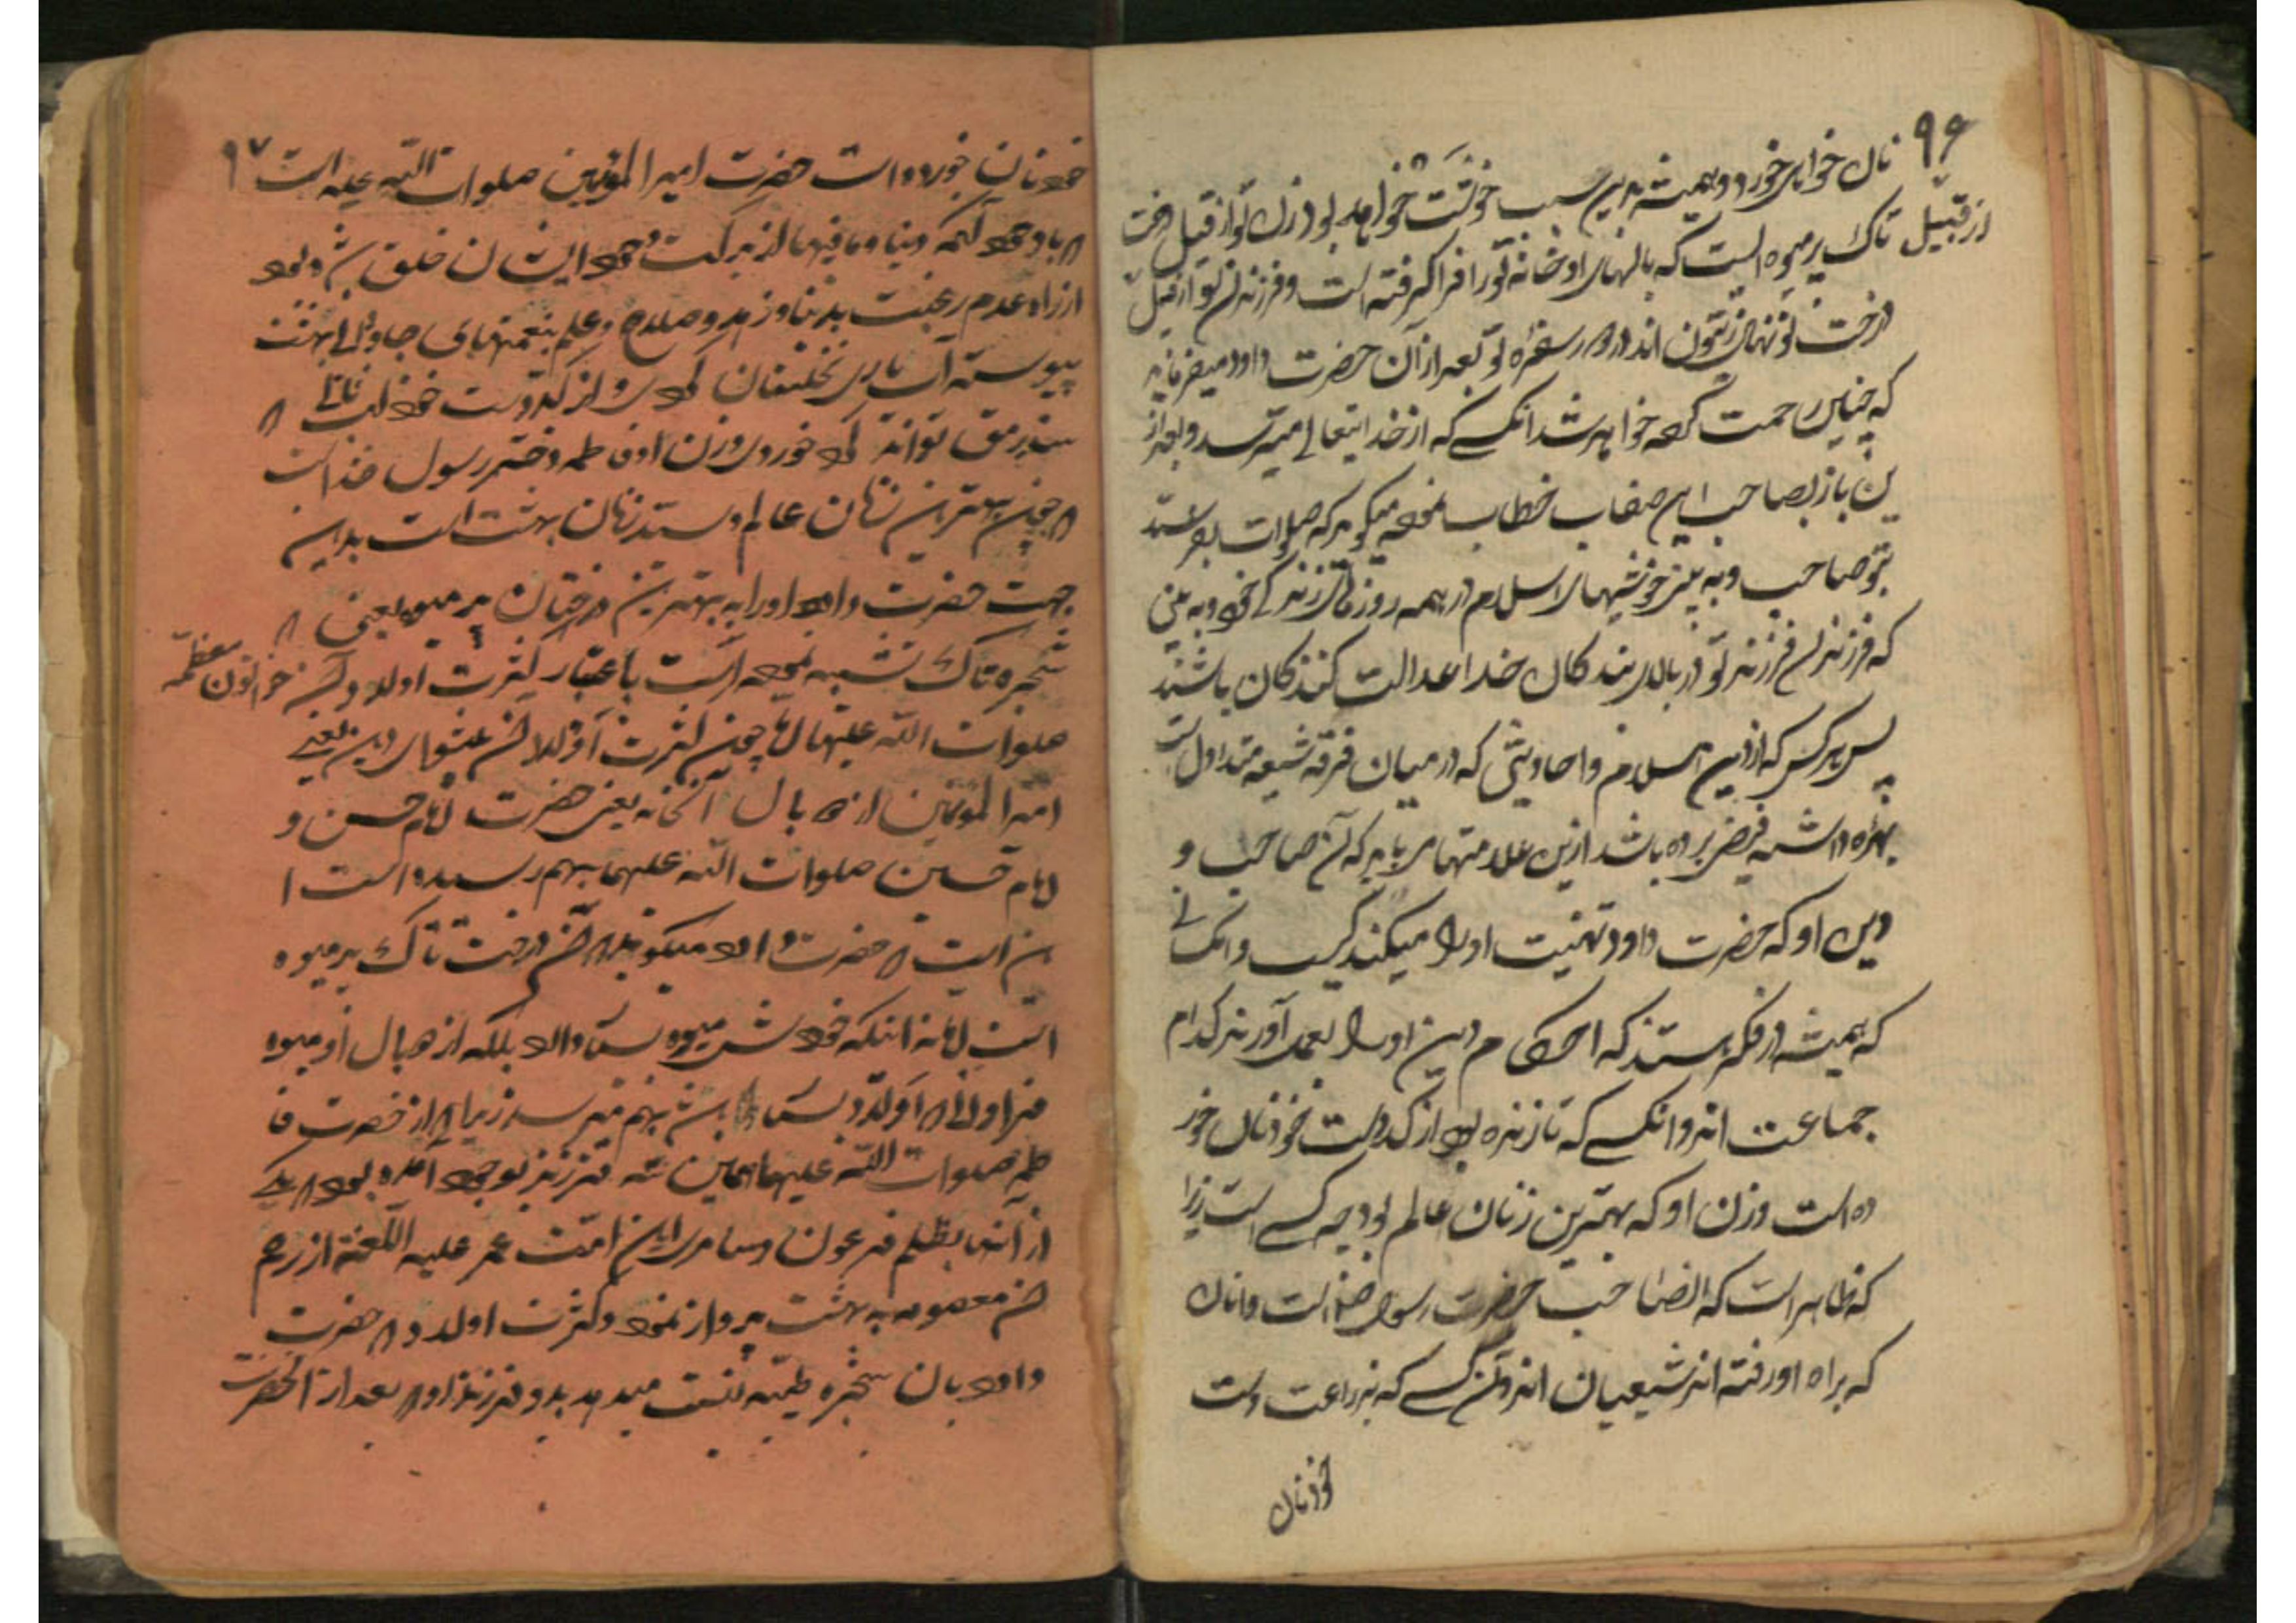 ۹۶
نان خواهی خورد و همیشه بدین سبب خوشت خواهد بود زن تو از قبیل درخت
از قبیل تاک پرمیوه است که بالهای او خانه تو را فراگرفته است و فرزندان تو از قبیل
درخت نونهال زیتون اند در دور سفره تو بعد از آن حضرت داود میفرماید
که چنین رحمت کرده خواهد شد انکسے که از خدایتعالی میترسد و بعد از
ین باز بصاحب این صفات خطاب نموده میگوید که صلوات بفرستد
بتو صاحب و به بینی خوشیهای اسلام در همه روزهای زندگی خود و به بینی
که فرزندان فرزند تو در بالای بندگان خدا عدالت کنندگان باشند
پس هر کس که از دین اسلام و احادیثی که در میان فرقه شیعه متداول است
بهره داشته فیض برده باشد ازین علامتها می یابد که آن صاحب و
دین او که حضرت داود تهنیت او را میکند کیست و انکسانے
که همیشه در فکر هستند که احکام دین او را بعمل آورند کدام
جماعت اند و انکسے که تا زنده بود از کد دست خود نان خور
ده است و زن او که بهترین زنان عالم بود چه کسے است زیرا
که ظاهر است که انصاحب حضرت رسول خداست و انان
که براه او رفته اند شیعیان اند و آن کسے که بزراعت دست
خود نان
خود نان خورده است حضرت امیر المؤمنین صلوات اللّه علیه است ۹۷
که با وجود آنکه دنیا و مافیها از برکت وجود ایشان خلق شده بود
از راه عدم رغبت بدنیا و زهد و صلاح و علم بنعمتهای جاودانی بهشت
پیوسته آب یاری نخلستان کردی و از کد دست خود لب نانے که
سد رمق تواند کرد خوردی و زن او فاطمه دختر رسول خداست
که چون بهترین زنان عالم و سیّد زنان بهشت است بدین
جهت حضرت داود او را به بهترین درختان پرمیوه یعنی
شجره تاک تشبیه نموده است باعتبار کثرت اولاد و آن خواتون معظّمه
صلوات اللّه علیها اما چون کثرت اولاد آن پیشوای دین یعنے
امیر المؤمنین از دو بال آنخانه یعنی حضرت امام حسن و
امام حسین صلوات اللّه علیهما بهم رسیده است ا
ین است که حضرت داود میگوید که آن درخت تاک پرمیوه
است اما نه اینکه خودش میوه بسیار دارد بلکه از دو بال او میوه
فراوانی که اولاد بسیار باشد بهم میرسد زیرا که از حضرت فا
طمه صلوات اللّه علیها همین سه فرزند بوجود آمده بود که یکے
از آنها بظلم فرعون و سامری این امّت عمر علیه اللّعنه از رحم
آن معصومه به بهشت پرواز نمود و کثرت اولاد که حضرت
داود بان شجره طیّبه نسبت میدهد بدو فرزند او که بعد از آنحضرت